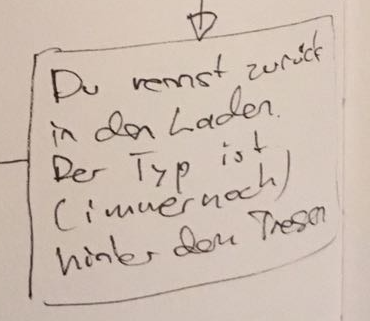 Du rennst zurück
in den Laden.
Der Typ ist
(immernoch)
hinter dem Tresen